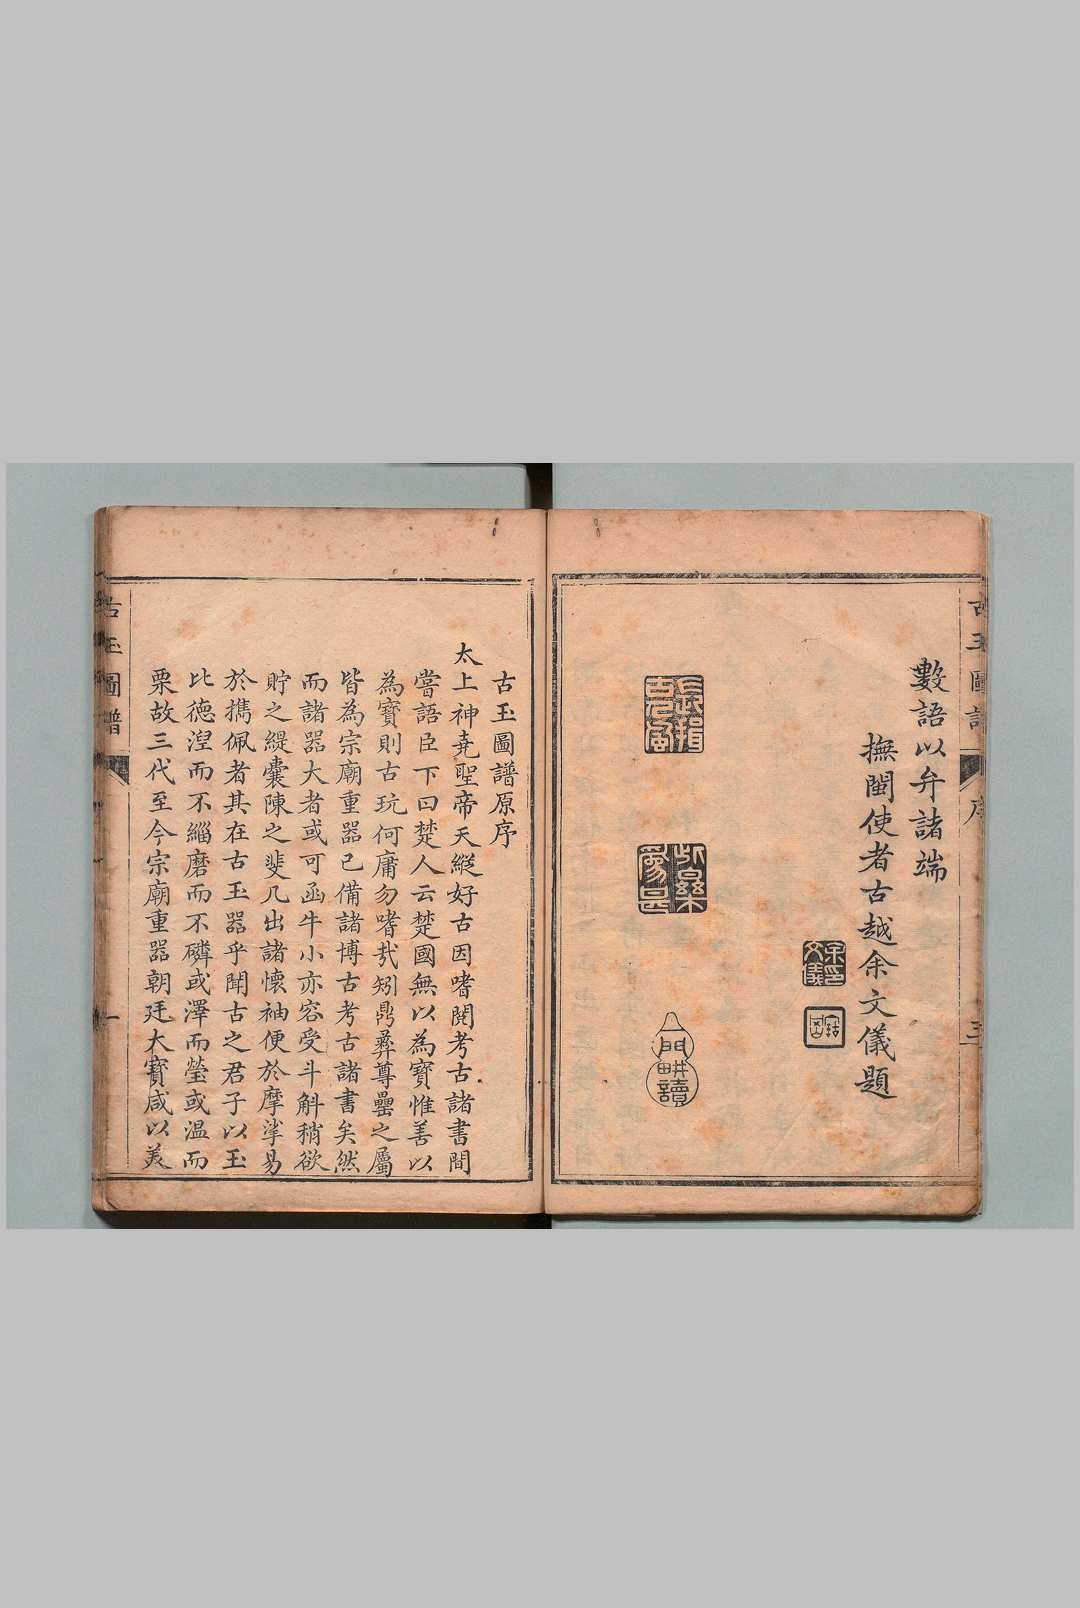 數語以弁諸端
撫閩使者古越余文儀題
耕讀
序
三
古玉圖譜原序
太上神堯聖帝天縱好古因嗜閱考古諸書間
嘗語臣下曰楚人云楚國無以為寶惟善以
為寶則古玩何庸勿嗜哉矧鼎彞尊罍之屬
皆為宗廟重器已備諸博古考古諸書矣然
而諸器大者或可函牛小亦容受斗斛稍欲
貯之緹囊陳之斐几出諸懷袖便於摩挲易
於攜佩者其在古玉器乎聞古之君子以玉
比德涅而不緇磨而不磷或澤而瑩或溫而
栗故三代至今宗廟重器朝廷大寶咸以美
古玉圖譜
一